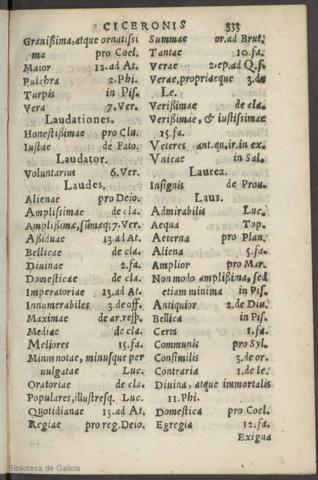 CICERONIS 333
Grauißima, atque ornatißi
ma pro Coel.
Maior 12. ad At.
Pulchra 2. Phi.
Turpis in Pis.
Vera 7. Ver.
Laudationes.
Honestißimae pro Clu.
Iustae de Fato.
Laudator.
Voluntarius 6. Ver.
Laudes.
Alienae pro Deio.
Amplißimae de cla.
Amplißimæ, sūmæq; 7. Ver.
Aßiduae 13. ad At.
Bellicae de cla.
Diuinae 2. fa.
Domesticae de cla.
Imperatoriae 13. ad At.
Innumerabiles 3. de off.
Maximae de ar. resp.
Mediae de cla.
Meliores 15. fa.
Minus notae, minusque per
uulgatae Luc.
Oratoriae de cla.
Populares, illustresq. Luc.
Quotidianae 13. ad At.
Regiae pro reg. Deio.
Summae or. ad Brut.
Tantae 10. fa.
Verae 2. ep. ad Q. f.
Verae, propriaeque 3. de
Le.
Verißimae de cla.
Verißimae, & iustißimae
15. fa.
Veteres ant. qu. ir. in ex.
Vnicae in Sal.
Laurea.
Insignis de Prou.
Laus.
Admirabilis Luc.
Aequa Top.
Aeterna pro Plan.
Aliena 5. fa.
Amplior pro Mar.
Non modo amplißima, sed
etiam minima in Pis.
Antiquior 2. de Diu.
Bellica in Pis.
Certa 1. fa.
Communis pro Syl.
Consimilis 3. de or.
Contraria 1. de le.
Diuina, atque immortalis
11. Phi.
Domestica pro Coel.
Egregia 12. fa.
Exigua
Biblioteca de Galicia